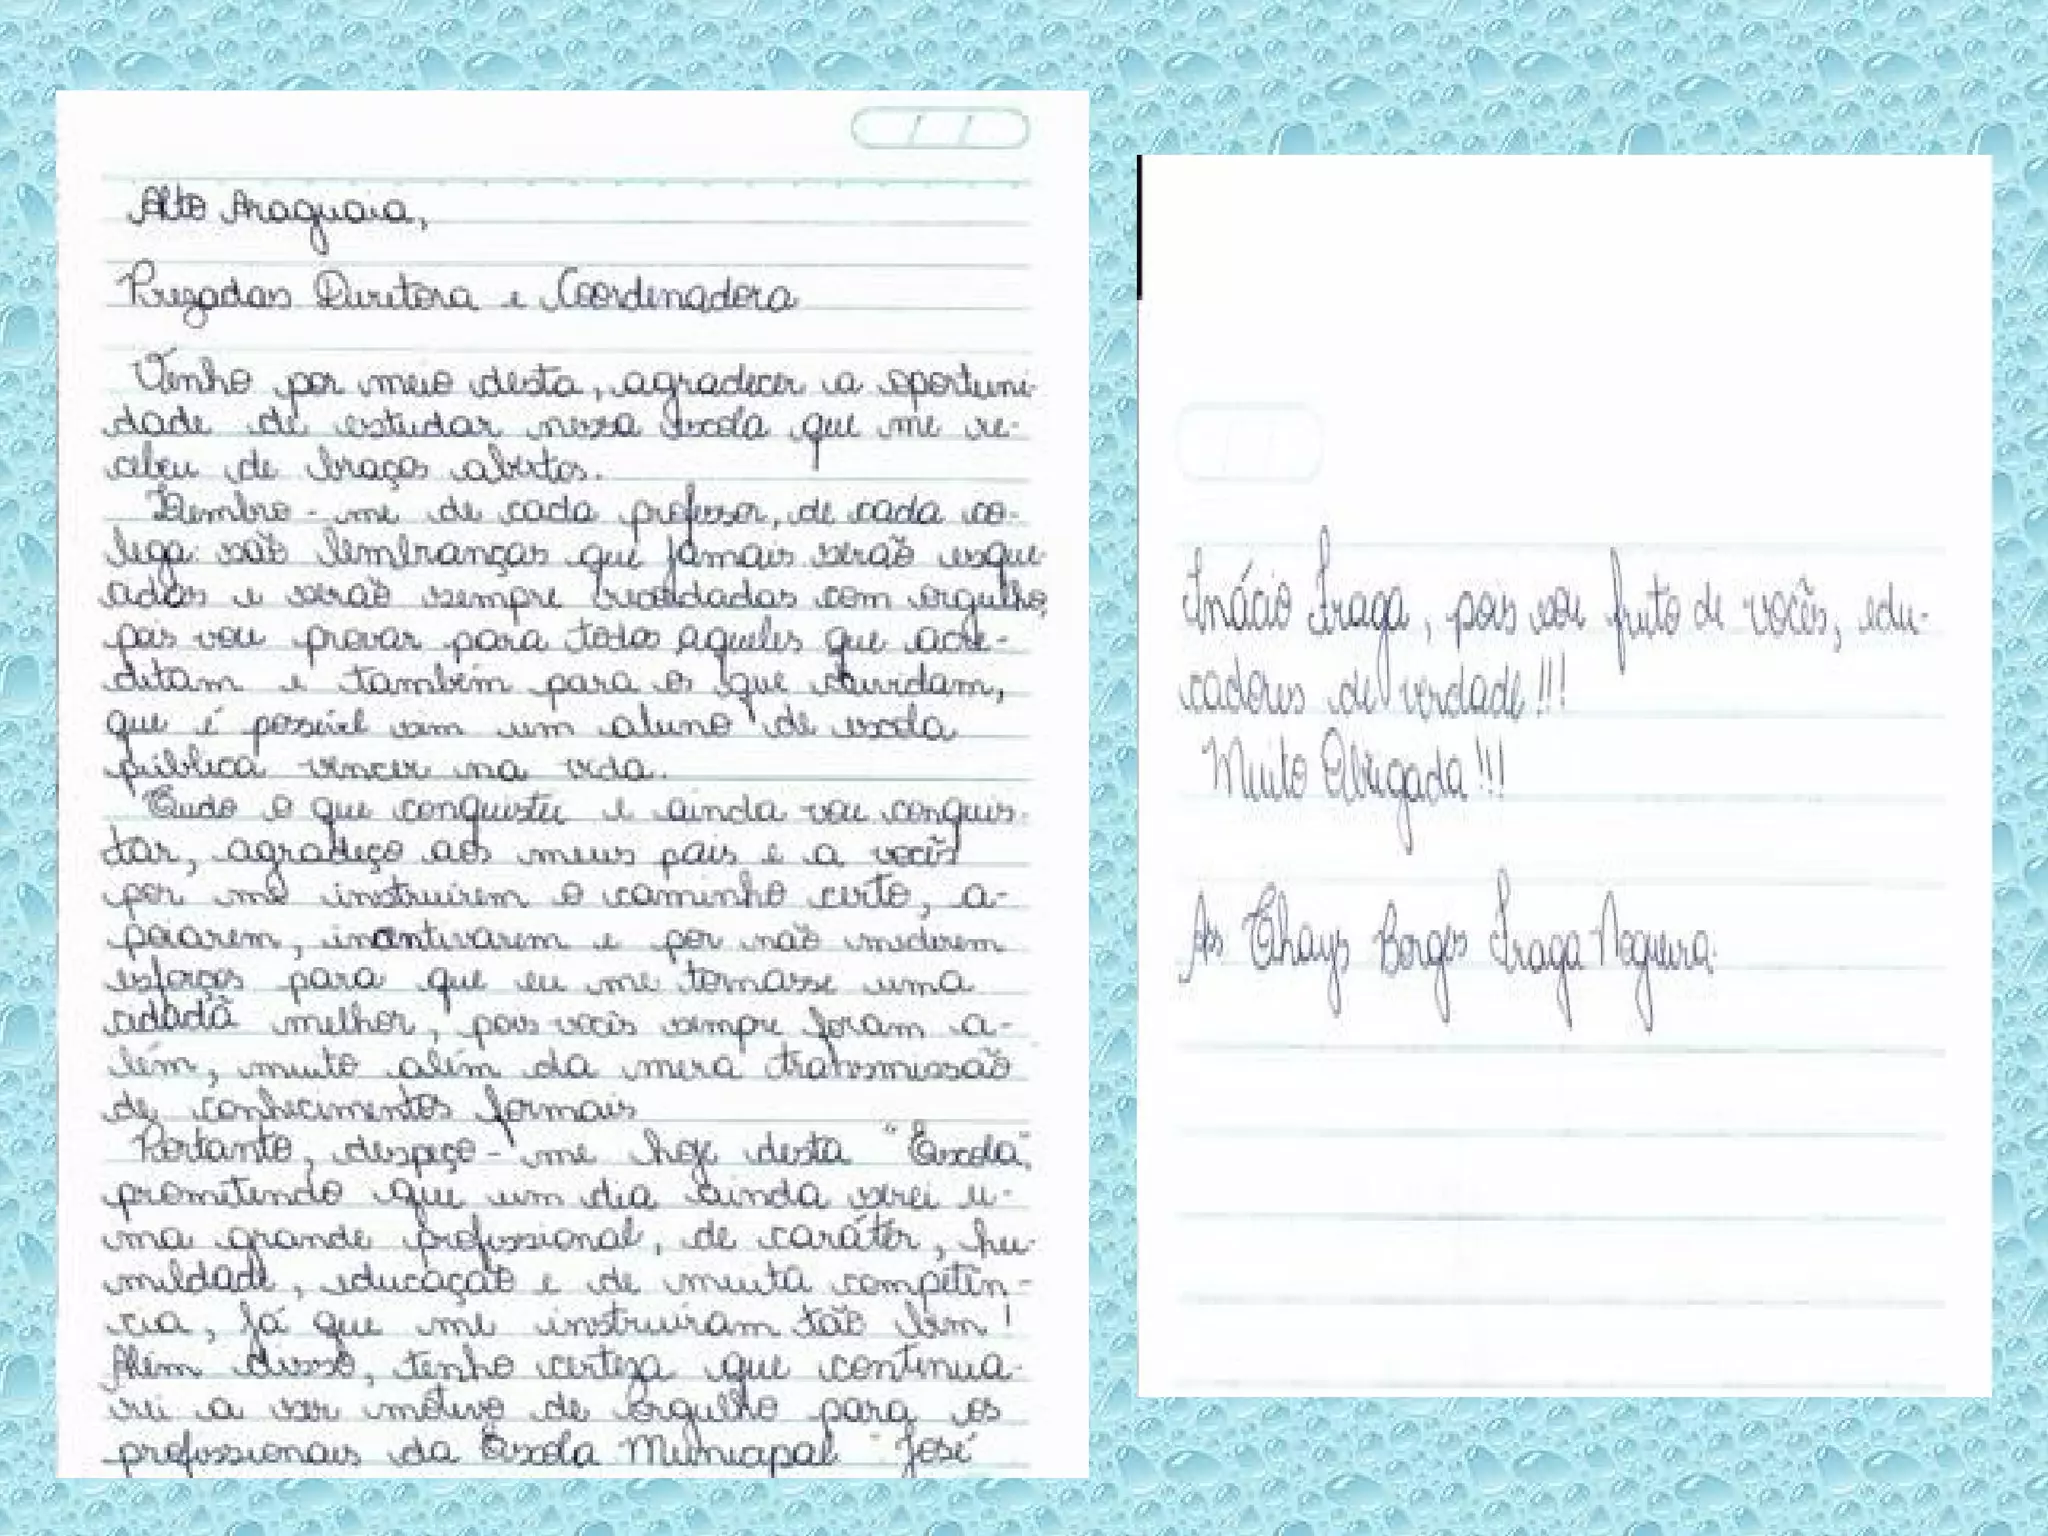 Alto Araguaia,
Prezadas Diretora e Coordenadora
Venho por meio desta, agradecer a oportuni-
dade de estudar nessa Escola que me re-
cebeu de braços abertos.
Lembro-me de cada professor, de cada co-
lega: são lembranças que jamais serão esque-
cidas e serão sempre recordadas com orgulho,
pois vou provar para todos aqueles que acre-
ditam e também para os que duvidam,
que é possível sim um aluno de escola
pública vencer na vida.
Tudo o que conquistei e ainda vou conquis-
tar, agradeço aos meus pais e a vocês
por me instruirem o caminho certo, a-
poiarem, incentivarem e por não medirem
esforços para que eu me tornasse uma
cidadã melhor, pois vocês sempre foram a-
lém, muito além da mera transmissão
de conhecimentos formais
Portanto, despeço-me hoje desta "Escola",
prometendo que um dia ainda serei u-
ma grande profissional, de caráter, hu-
mildade, educação e de muita competên-
cia, já que me instruiram tão bem!
Além disso, tenho certeza que continua-
rei a ser motivo de orgulho para os
profissionais da Escola Municipal "José
Inácio Fraga, pois sou fruto de vocês, edu-
cadores de verdade!!!
Muito Obrigada!!!
Ass Thays Borges Fraga Nogueira.